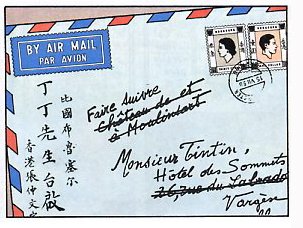 BY AIR MAIL
PAR AVION
HONGKONG
HONGKONG
丁丁先生台啟
比國布魯塞尔
香港張仲文
Faire suivre
Château de et
à Moulinsart
Monsieur Tintin,
Hôtel des Sommets
26, rue du Labrador
Vargèse